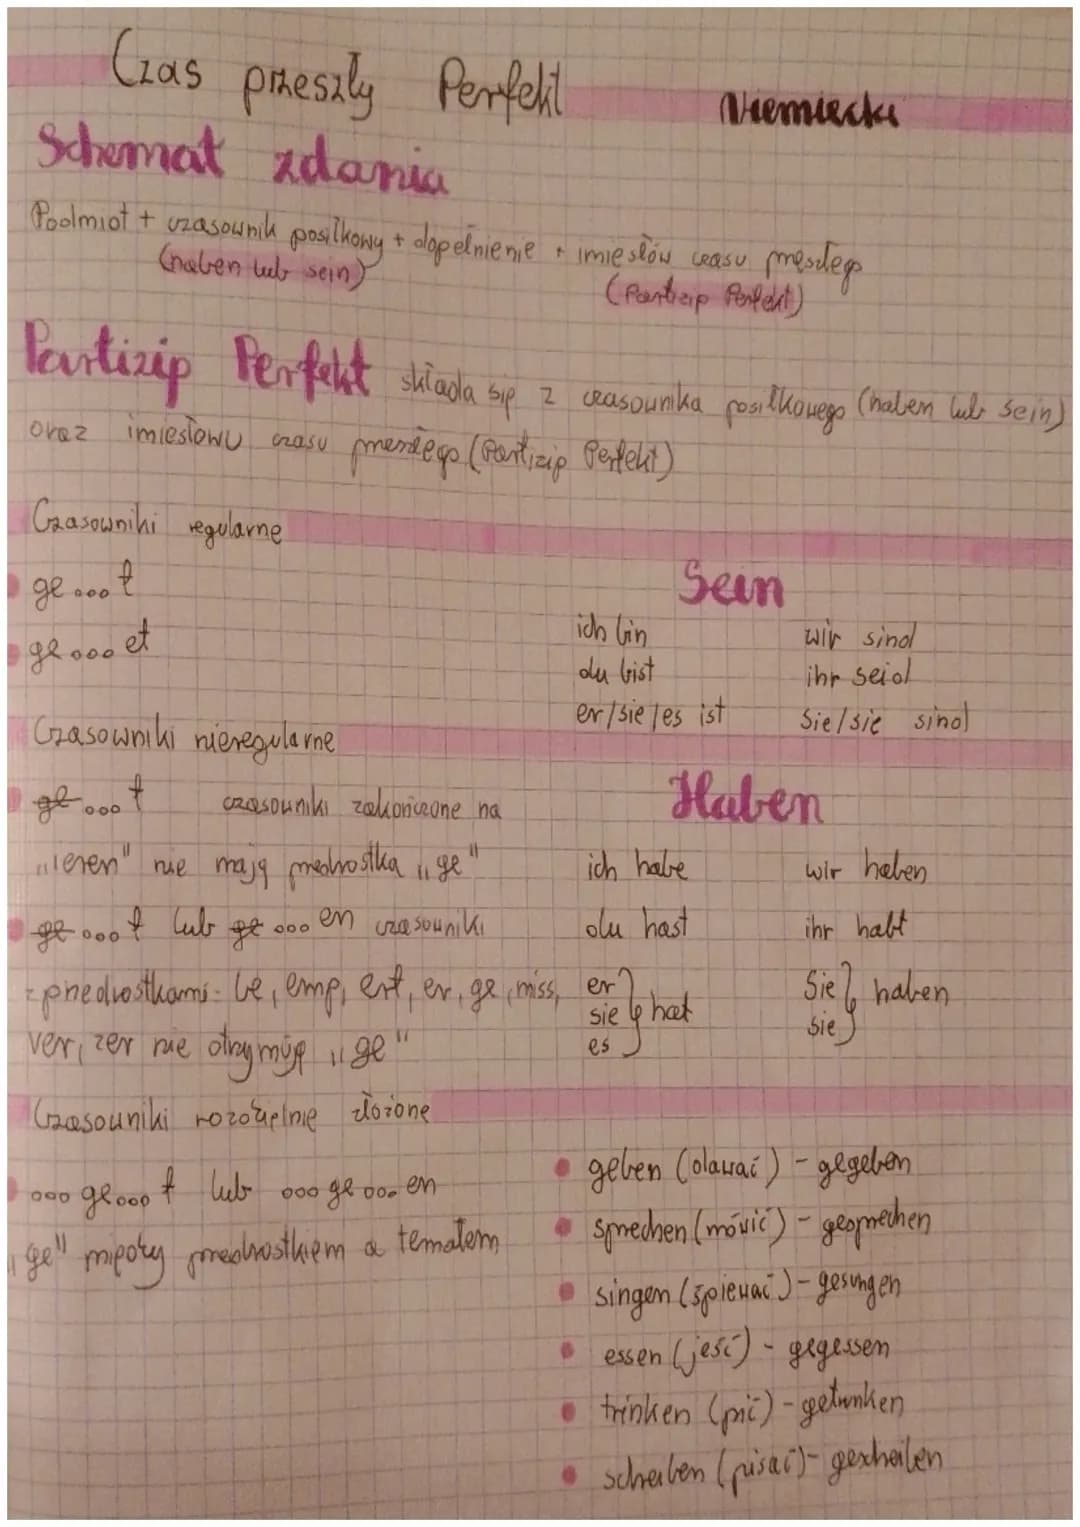 Czas przeszły Perfekt
Niemiecki
Schemat zdania
Podmiot + czasownik posiłkowy + dopełnienie + imiesłów czasu przeszłego
(haben lub sein)
(Partizip Perfekt)
Partizip Perfekt składa się z czasownika posiłkowego (haben lub sein)
oraz imiesłowu czasu przeszłego (Partizip Perfekt)
Czasowniki regularne
ge...t
ge...et
Sein
ich bin wir sind
du bist ihr seid
er/sie/es ist Sie/sie sind
Czasowniki nieregularne
ge...t czasowniki zakończone na
„ieren" nie mają przedrostka „ge"
ge...t lub ge...en czasowniki
z przedrostkami- be, emp, ent, er, ge, miss,
ver, zer nie otrzymują „ge"
Haben
ich habe wir haben
du hast ihr habt
er
sie } hat
es
Sie
sie } haben
Czasowniki rozdzielnie złożone
...ge...t lub ...ge...en
„ge" między przedrostkiem a tematem
geben (dawać) - gegeben
sprechen (mówić) - gesprechen
singen (śpiewać) - gesungen
essen (jeść) - gegessen
trinken (pić) - getrunken
schreiben (pisać) - gescheiben